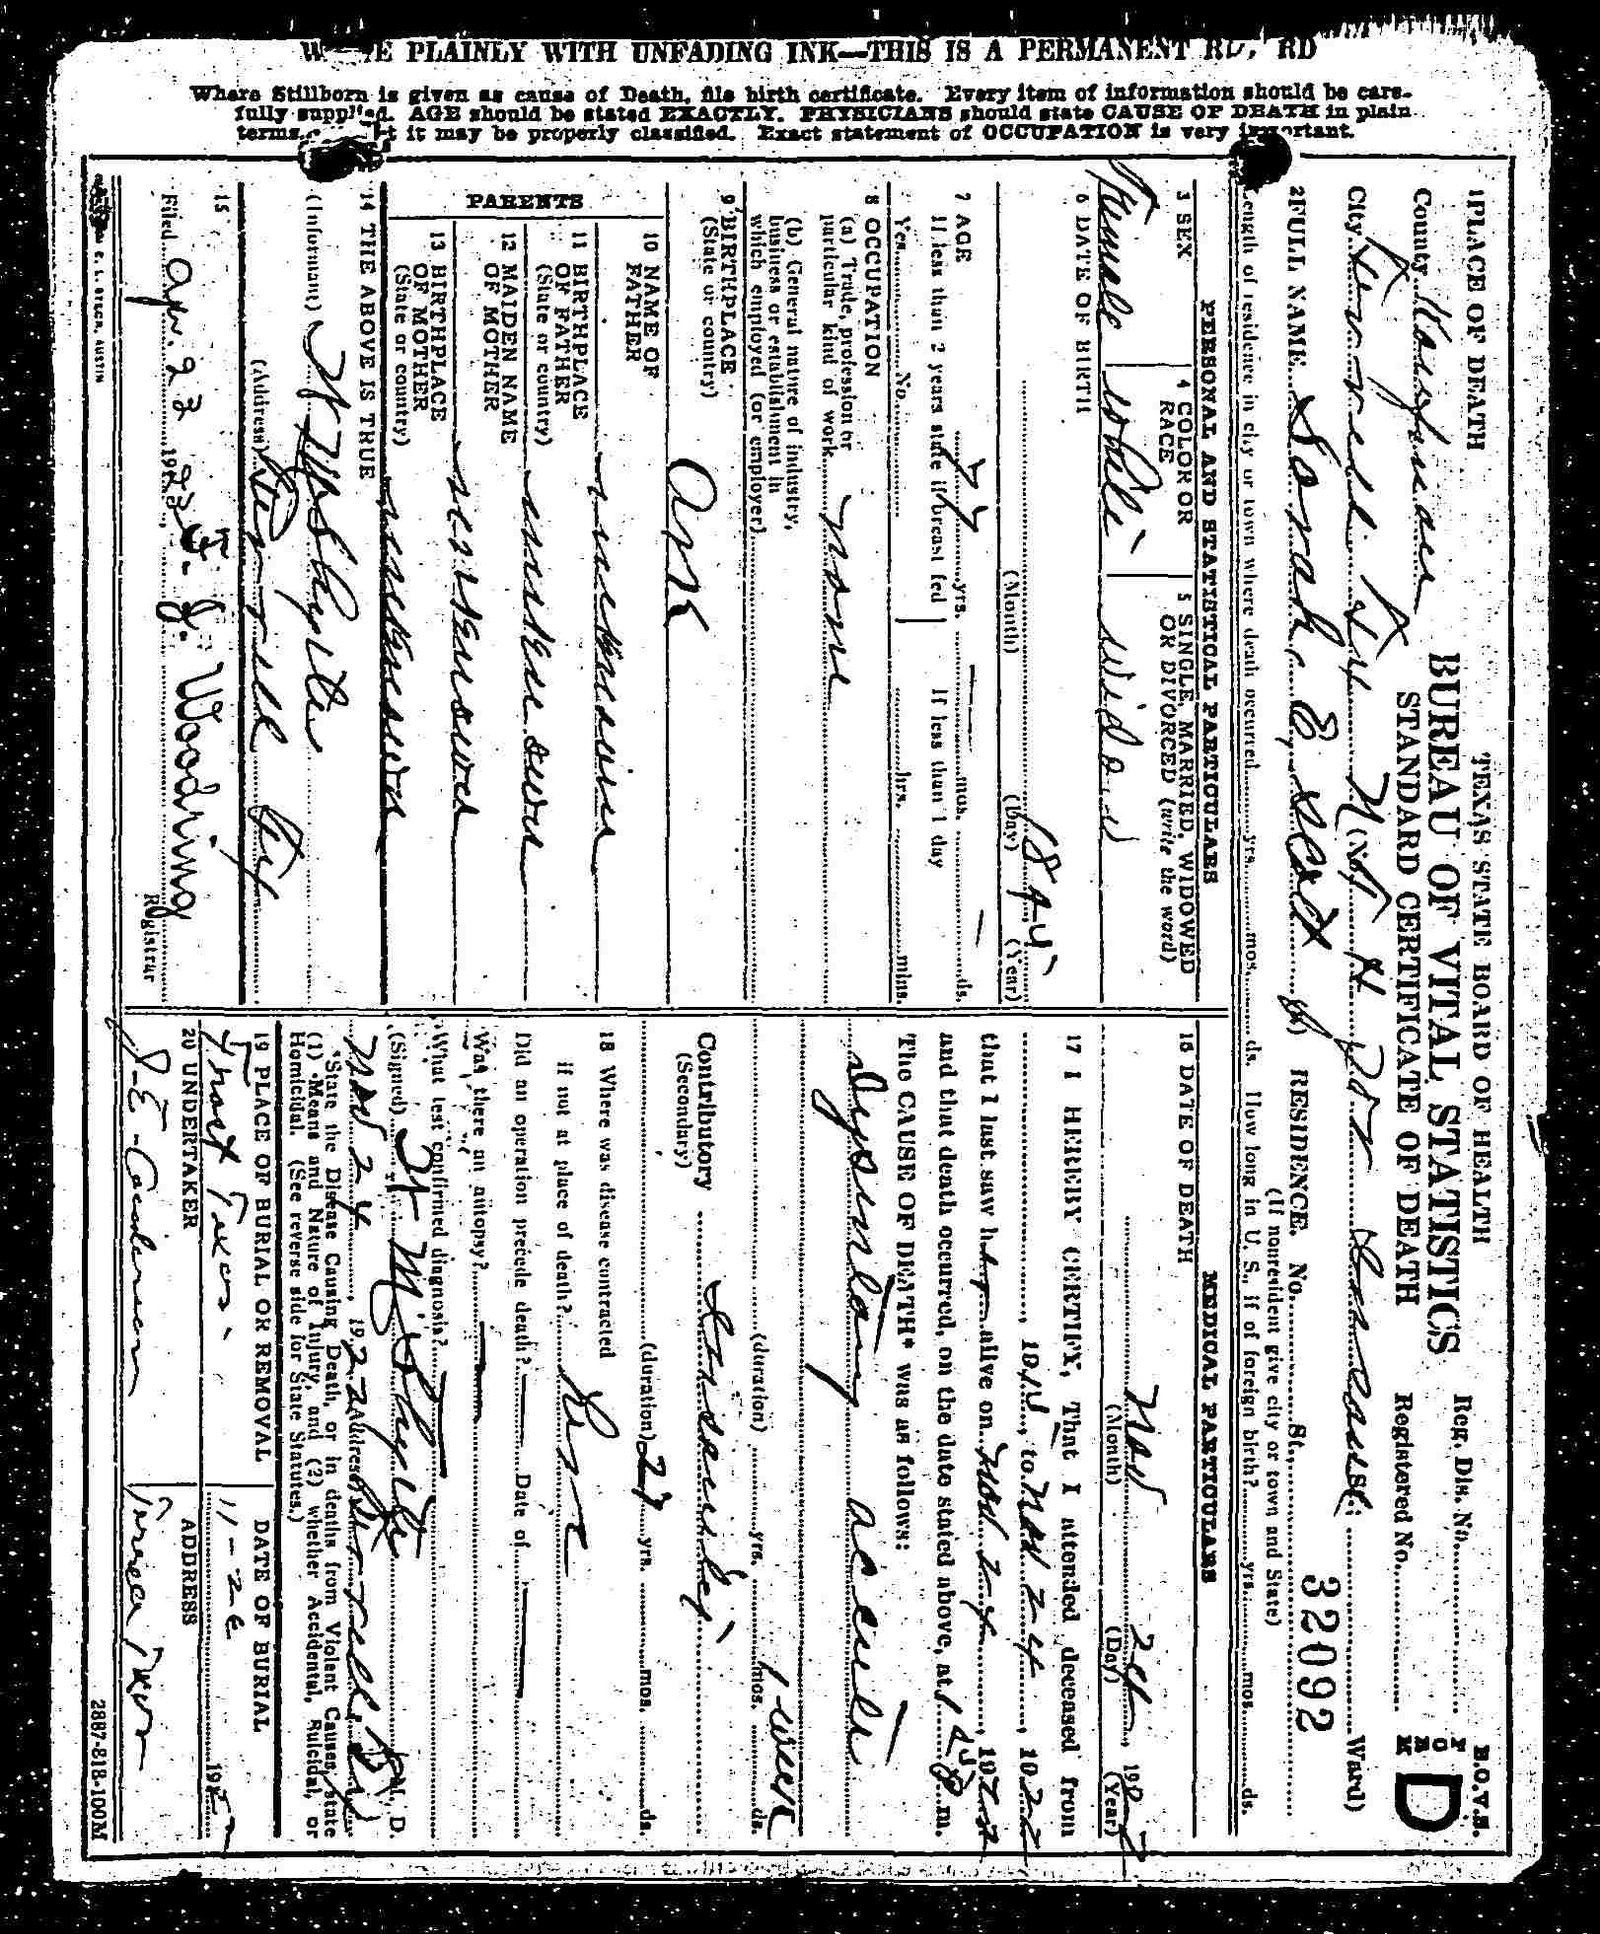 PLAINLY WITH UNFADING INK—THIS IS A PERMANENT
Where Stillborn is given as cause of Death, file birth certificate. Every item of information should be care-
fully supplied. AGE should be stated EXACTLY. PHYSICIANS should state CAUSE OF DEATH in plain
terms, it may be properly classified. Exact statement of OCCUPATION is very important.
TEXAS STATE BOARD OF HEALTH
BUREAU OF VITAL STATISTICS
STANDARD CERTIFICATE OF DEATH
B.O.V.S.
FORM D
Reg. Dis. No.
Registered No.
32092
1 PLACE OF DEATH
County Kaufman
City Terrell (No. Ward)
2 FULL NAME Sarah E. RESIDENCE. No. St.,
(If nonresident give city or town and State)
Length of residence in city or town where death occurred yrs. mos. ds. How long in U. S., if of foreign birth? yrs. mos. ds.
PERSONAL AND STATISTICAL PARTICULARS
3 SEX
Female
4 COLOR OR RACE
White
5 SINGLE, MARRIED, WIDOWED OR DIVORCED (write the word)
Widow
6 DATE OF BIRTH
(Month) (Day) (Year)
7 AGE
77 yrs. — mos. — ds.
If less than 2 years state if breast fed
Yes No
If less than 1 day
hrs. mins.
8 OCCUPATION
(a) Trade, profession or
particular kind of work none
(b) General nature of industry,
business or establishment in
which employed (or employer)
9 BIRTHPLACE
(State or country) Ark
PARENTS
10 NAME OF FATHER unknown
11 BIRTHPLACE OF FATHER
(State or country) unknown
12 MAIDEN NAME OF MOTHER unknown
13 BIRTHPLACE OF MOTHER
(State or country) unknown
14 THE ABOVE IS TRUE
(Informant)
(Address) Terrell
15
Filed Apr. 23 1923 J. J. Wooding
Registrar
AUSTIN
MEDICAL PARTICULARS
16 DATE OF DEATH
Nov 24 192
(Month) (Day) (Year)
17 I HEREBY CERTIFY, That I attended deceased from
, 191, to Nov 24, 1922
that I last saw h alive on Nov 24, 1922
and that death occurred, on the date stated above, at m.
The CAUSE OF DEATH* was as follows:
Dysentery acute
1 week
(duration) yrs. mos. ds.
Contributory
(Secondary)
(duration) yrs. mos. ds.
18 Where was disease contracted
if not at place of death? here
Did an operation precede death? — Date of —
Was there an autopsy? —
What test confirmed diagnosis? —
(Signed) M. D.
Nov 24, 1922 (Address) Terrell
*State the Disease Causing Death, or in deaths from Violent Causes, state
(1) Means and Nature of Injury, and (2) whether Accidental, Suicidal, or
Homicidal. (See reverse side for State Statutes.)
19 PLACE OF BURIAL OR REMOVAL
Frost Texas.
DATE OF BURIAL
11-26 192
20 UNDERTAKER
ADDRESS
2887-818-100M